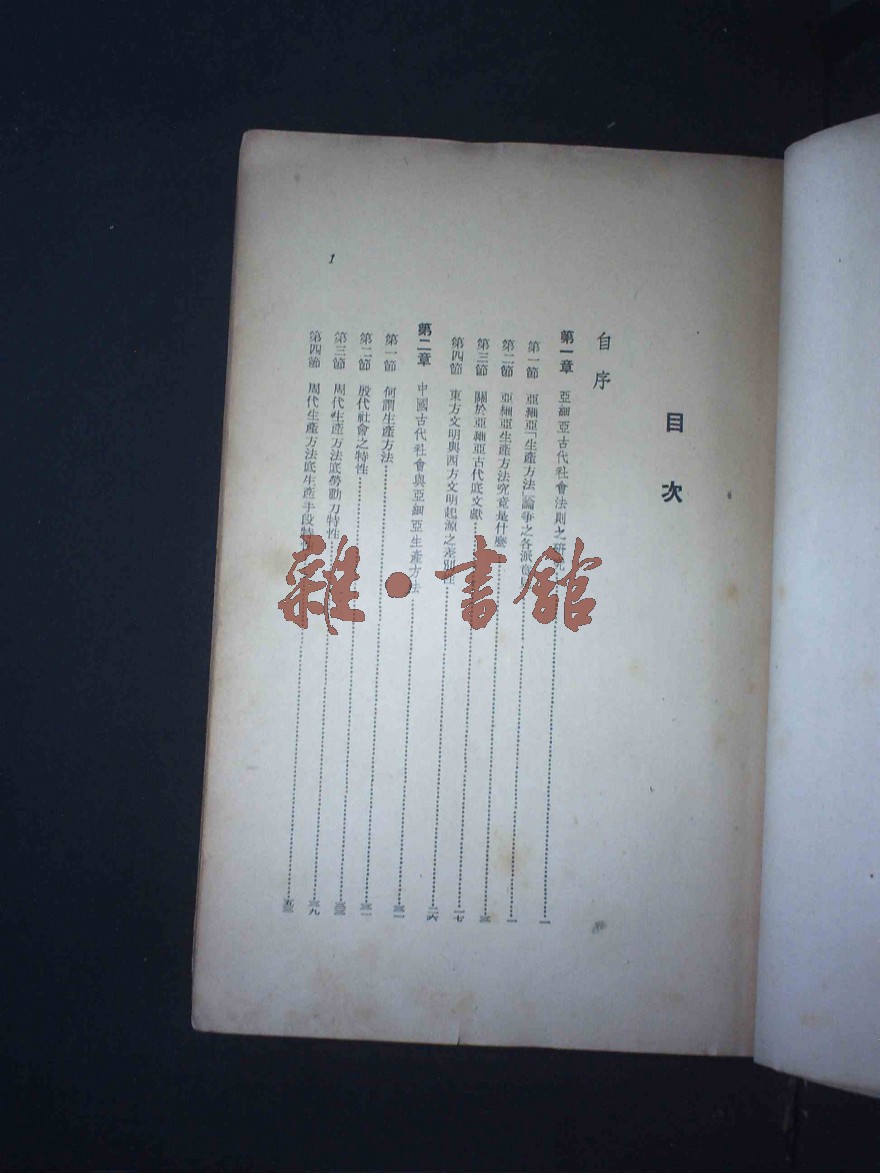 目次
自序
第一章 亞細亞古代社會法則之研究 一
第一節 亞細亞「生產方法」論爭之各派 一
第二節 亞細亞生產方法究竟是什麼 三
第三節 關於亞細亞古代底文獻 一七
第四節 東方文明與西方文明起源之差別性 二六
第二章 中國古代社會與亞細亞生產方法 三一
第一節 何謂生產方法 三一
第二節 殷代社會之特性 三三
第三節 周代生產方法底勞動力特性 三九
第四節 周代生產方法底生產手段特 五三
1
雜·書館